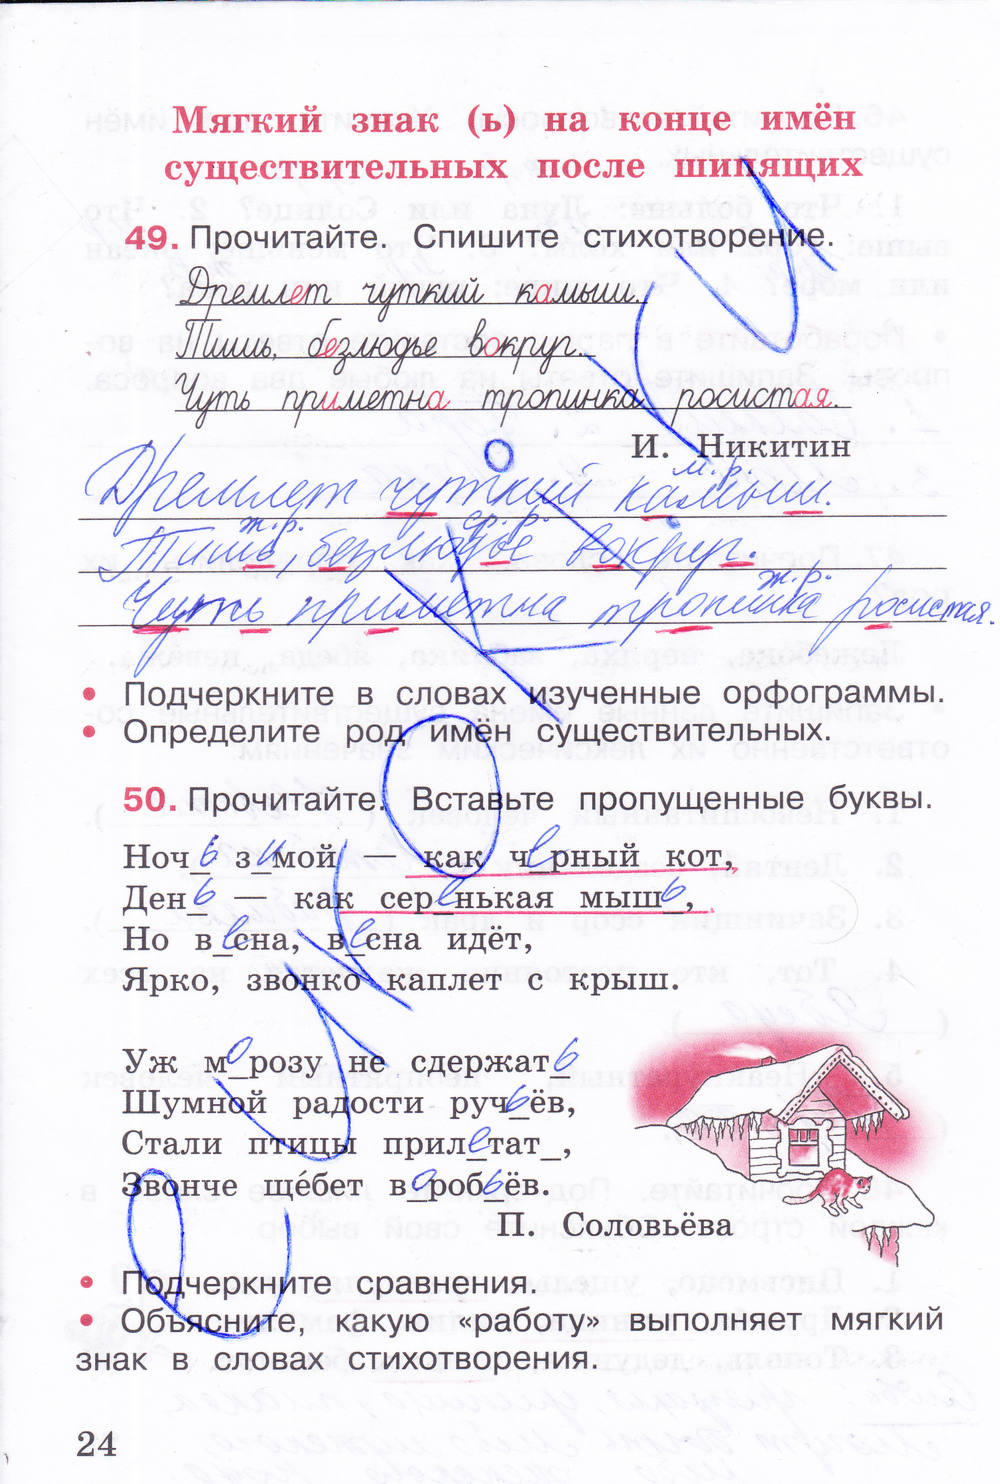 Мягкий знак (ь) на конце имён
существительных после шипящих
49. Прочитайте. Спишите стихотворение.
Дремлет чуткий камыш.
Тишь, безлюдье вокруг.
Чуть приметна тропинка росистая.
И. Никитин
м. р.
Дремлет чуткий камыш.
ж. р. ср. р.
Тишь безлюдье вокруг.
ж. р.
Чуть приметна тропинка росистая.
• Подчеркните в словах изученные орфограммы.
• Определите род имён существительных.
50. Прочитайте. Вставьте пропущенные буквы.
Ночь зимой как черный кот,
День — как серенькая мышь,
Но весна, весна идёт,
Ярко, звонко каплет с крыш.
Уж морозу не сдержать
Шумной радости ручьёв,
Стали птицы прилетат_,
Звонче щéбет воробьёв.
П. Соловьёва
• Подчеркните сравнения.
• Объясните, какую «работу» выполняет мягкий
знак в словах стихотворения.
24